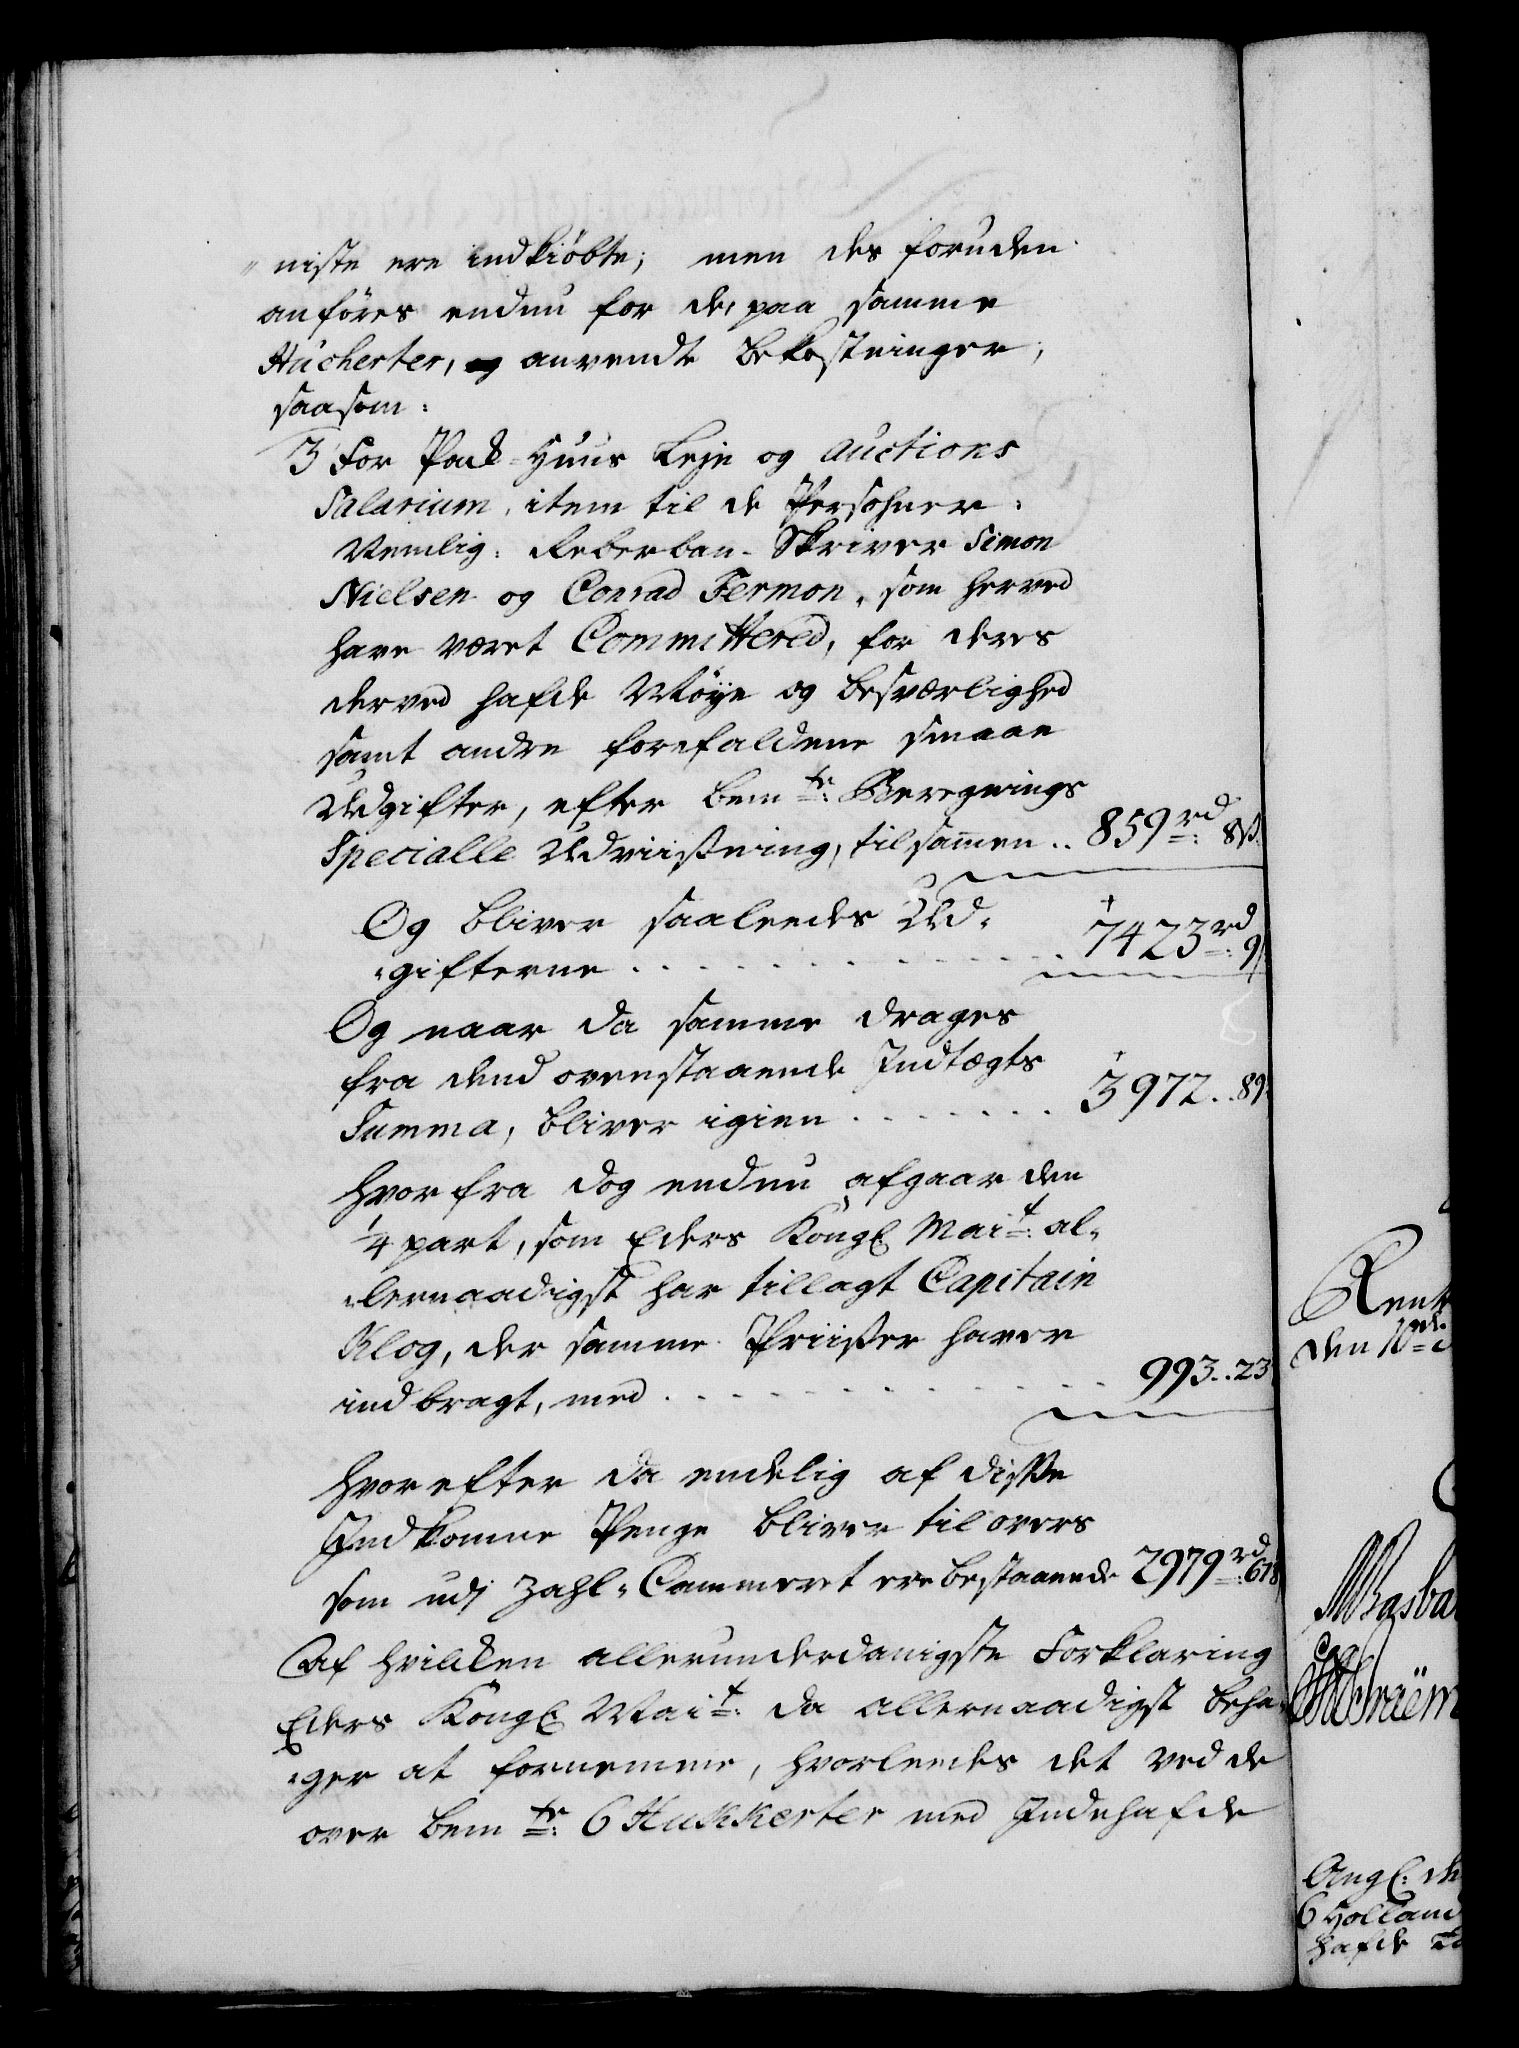 niste ere indkiöbte; men des foruden
anföres endnu for de, paa samme
Hucherter, anvendte Bekostninger,
saasom:
3 For Pack-Huus Leje og Auctions
Salarium, item til de Persohner:
Nemlig: Reberban-Skriver Simon
Nielsen og Conrad Fermon, som herved
have været Committered, for deres
derved hafde Möye og besværlighed
samt andre forefaldene smaae
Udgifter, efter bem.te Beregnings
Specialle Udviisning, tilsamen .. 859 rd 8 ß.
Og bliver saaledes Ud-
gifterne . . . . . . . . . . 7423 rd 9
Og naar da samme drages
fra dend ovenstaaende Indtægts
Summa, bliver igien . . . . . . . 3972 .. 89
Hvorfra dog endnu afgaar den
1/4 part, som Eders Kongl Mait: al-
lernaadigst har tillagt Capitain
Klog, der samme Priiser haver
indbragt, med . . . . . . . . . . 993 .. 23
Hvorefter da endelig af disse
Indkomne Penge bliver tilovers
som udj Zahl-Cammeret ere bestaaende 2979 rd:
Af hvilken allerunderdanigste Forklaring
Eders Kongl Mait: da allernaadigst beha-
ger at fornemme, hvorledes det ved de
over bem.te 6 Hukkerter med Indehafde
Rent
den 10de
6 Holland
hafde